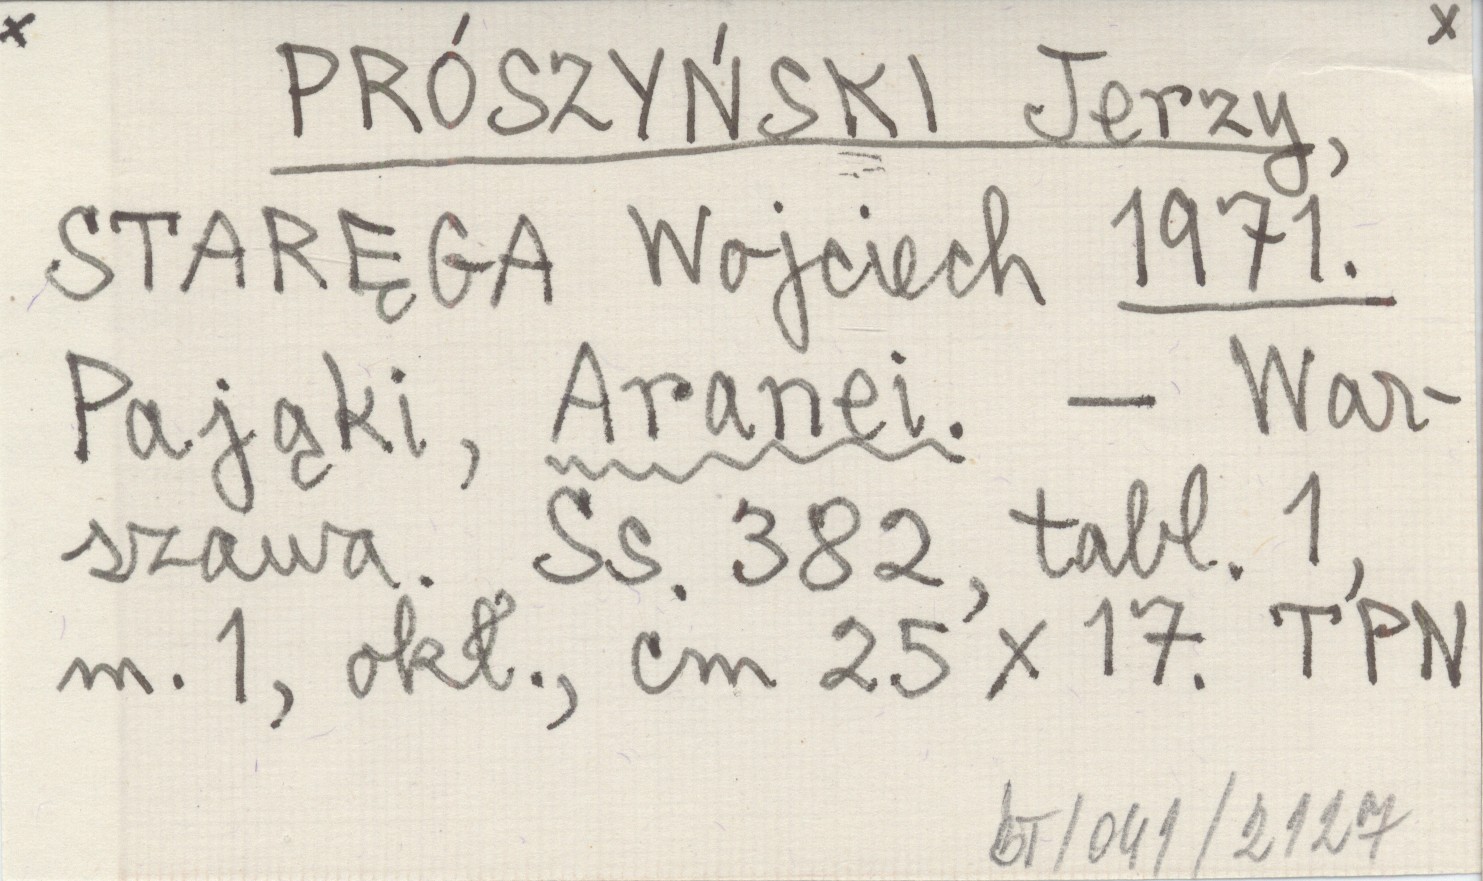 x x
PRÓSZYŃSKI Jerzy,
STARĘGA Wojciech 1971.
Pająki, Aranei. — War-
szawa. Ss. 382, tabl. 1,
m. 1, okł., cm 25 x 17. TPN
bT/041/2127